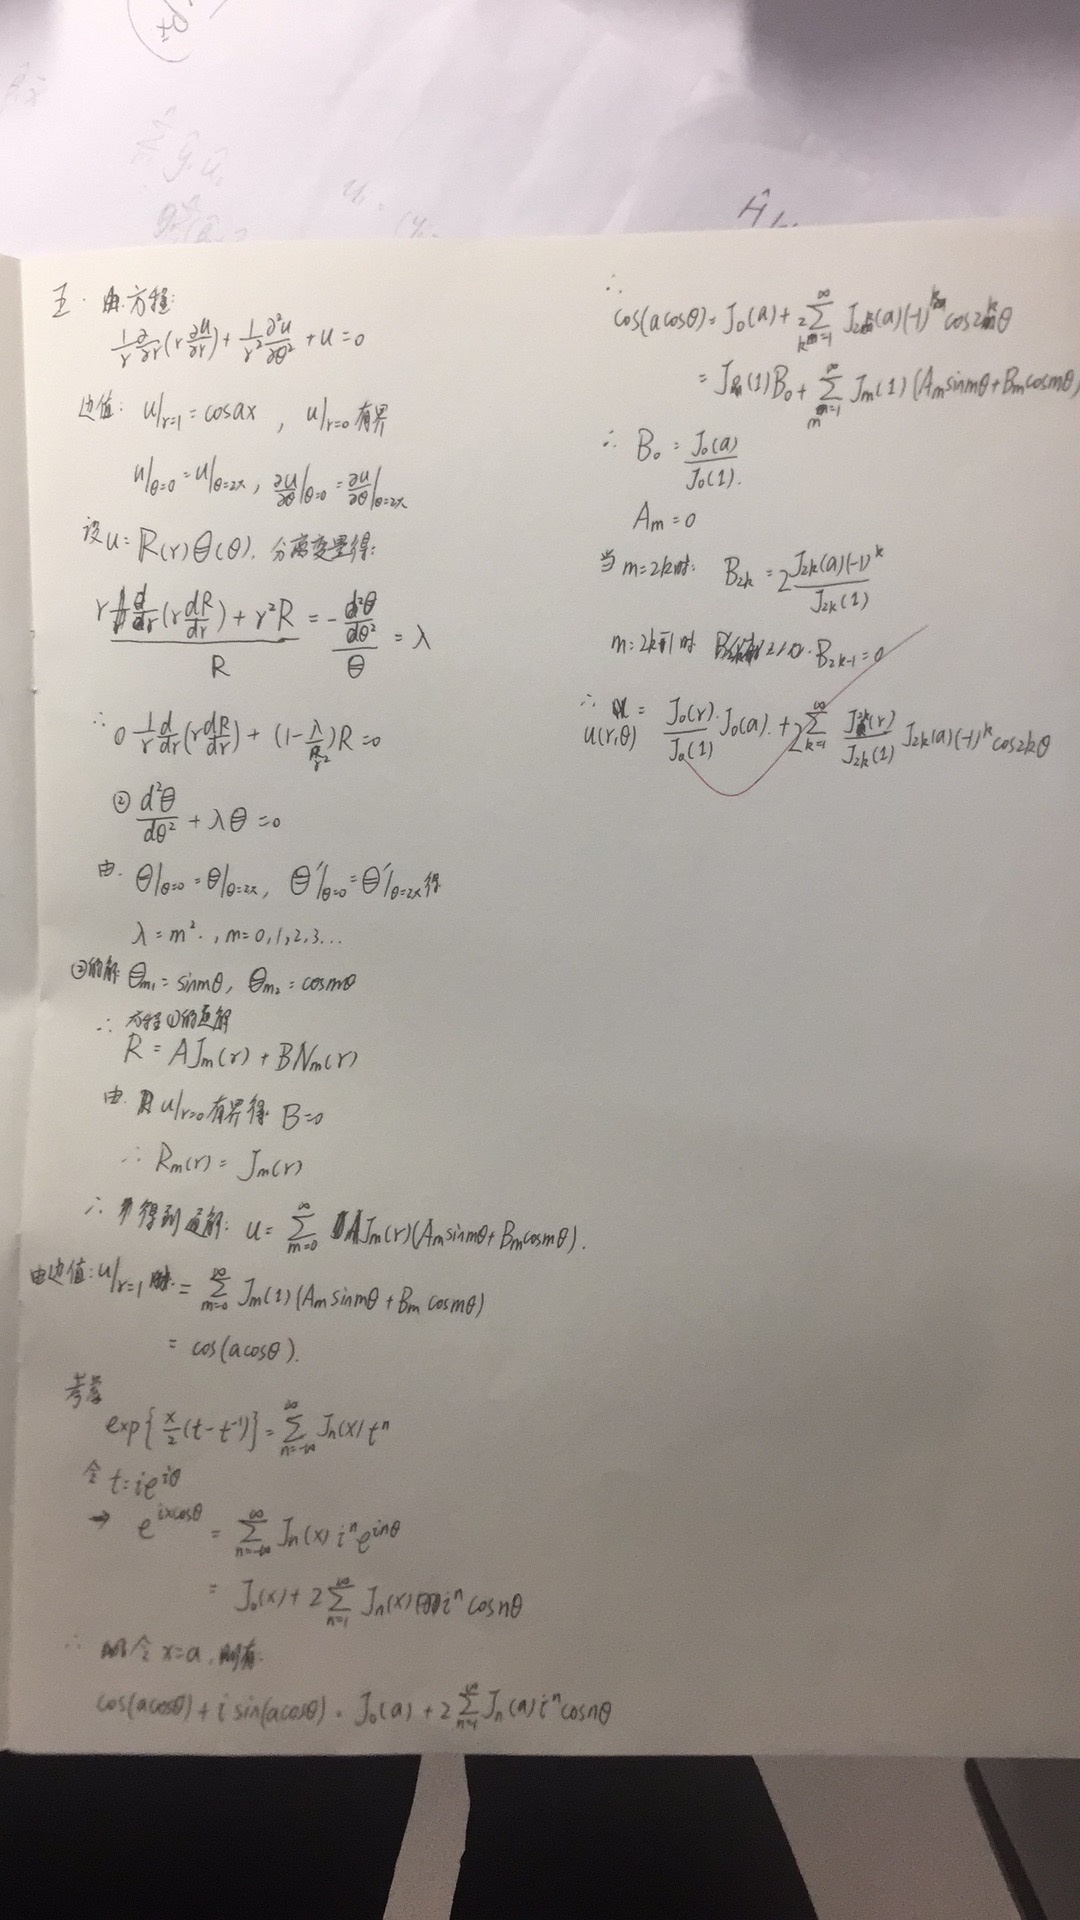 五. 由方程:
1/r ∂/∂r (r ∂u/∂r) + 1/r² ∂²u/∂θ² + u = 0
边值: u|r=1 = cosax , u|r=0 有界
u|θ=0 = u|θ=2π , ∂u/∂θ|θ=0 = ∂u/∂θ|θ=2π
设 u = R(r)Θ(θ). 分离变量得:
(r d/dr (r dR/dr) + r²R)/R = -(d²Θ/dθ²)/Θ = λ
∴ ① 1/r d/dr (r dR/dr) + (1 - λ/r²)R = 0
② d²Θ/dθ² + λΘ = 0
由. Θ|θ=0 = Θ|θ=2π , Θ'|θ=0 = Θ'|θ=2π 得
λ = m² . , m = 0,1,2,3...
②的解: Θm₁ = sinmθ, Θm₂ = cosmθ
∴ 方程①的通解
R = AJm(r) + BNm(r)
由. u|r=0 有界得 B=0
∴ Rm(r) = Jm(r)
∴ 得到通解: u = ∑_{m=0}^∞ Jm(r)(Am sinmθ + Bm cosmθ).
由边值: u|r=1 = ∑_{m=0}^∞ Jm(1)(Am sinmθ + Bm cosmθ)
= cos(acosθ).
考虑
exp{x/2 (t - t⁻¹)} = ∑_{n=-∞}^∞ Jn(x) tⁿ
令 t = ie^{iθ}
→ e^{ixcosθ} = ∑_{n=-∞}^∞ Jn(x) iⁿ e^{inθ}
= J₀(x) + 2∑_{n=1}^∞ Jn(x) iⁿ cosnθ
∴ 令 x=a, 则有:
cos(acosθ) + i sin(acosθ) = J₀(a) + 2∑_{n=1}^∞ Jn(a) iⁿ cosnθ
∴
cos(acosθ) = J₀(a) + 2∑_{k=1}^∞ J₂k(a)(-1)^k cos2kθ
= J₀(1)B₀ + ∑_{m=1}^∞ Jm(1)(Am sinmθ + Bm cosmθ)
∴ B₀ = J₀(a)/J₀(1).
Am = 0
当 m=2k时: B₂k = 2 J₂k(a)(-1)^k / J₂k(1)
m=2k-1时 B₂k₋₁ = 0
∴ u(r,θ) = J₀(r)/J₀(1) · J₀(a) + 2∑_{k=1}^∞ J₂k(r)/J₂k(1) J₂k(a)(-1)^k cos2kθ